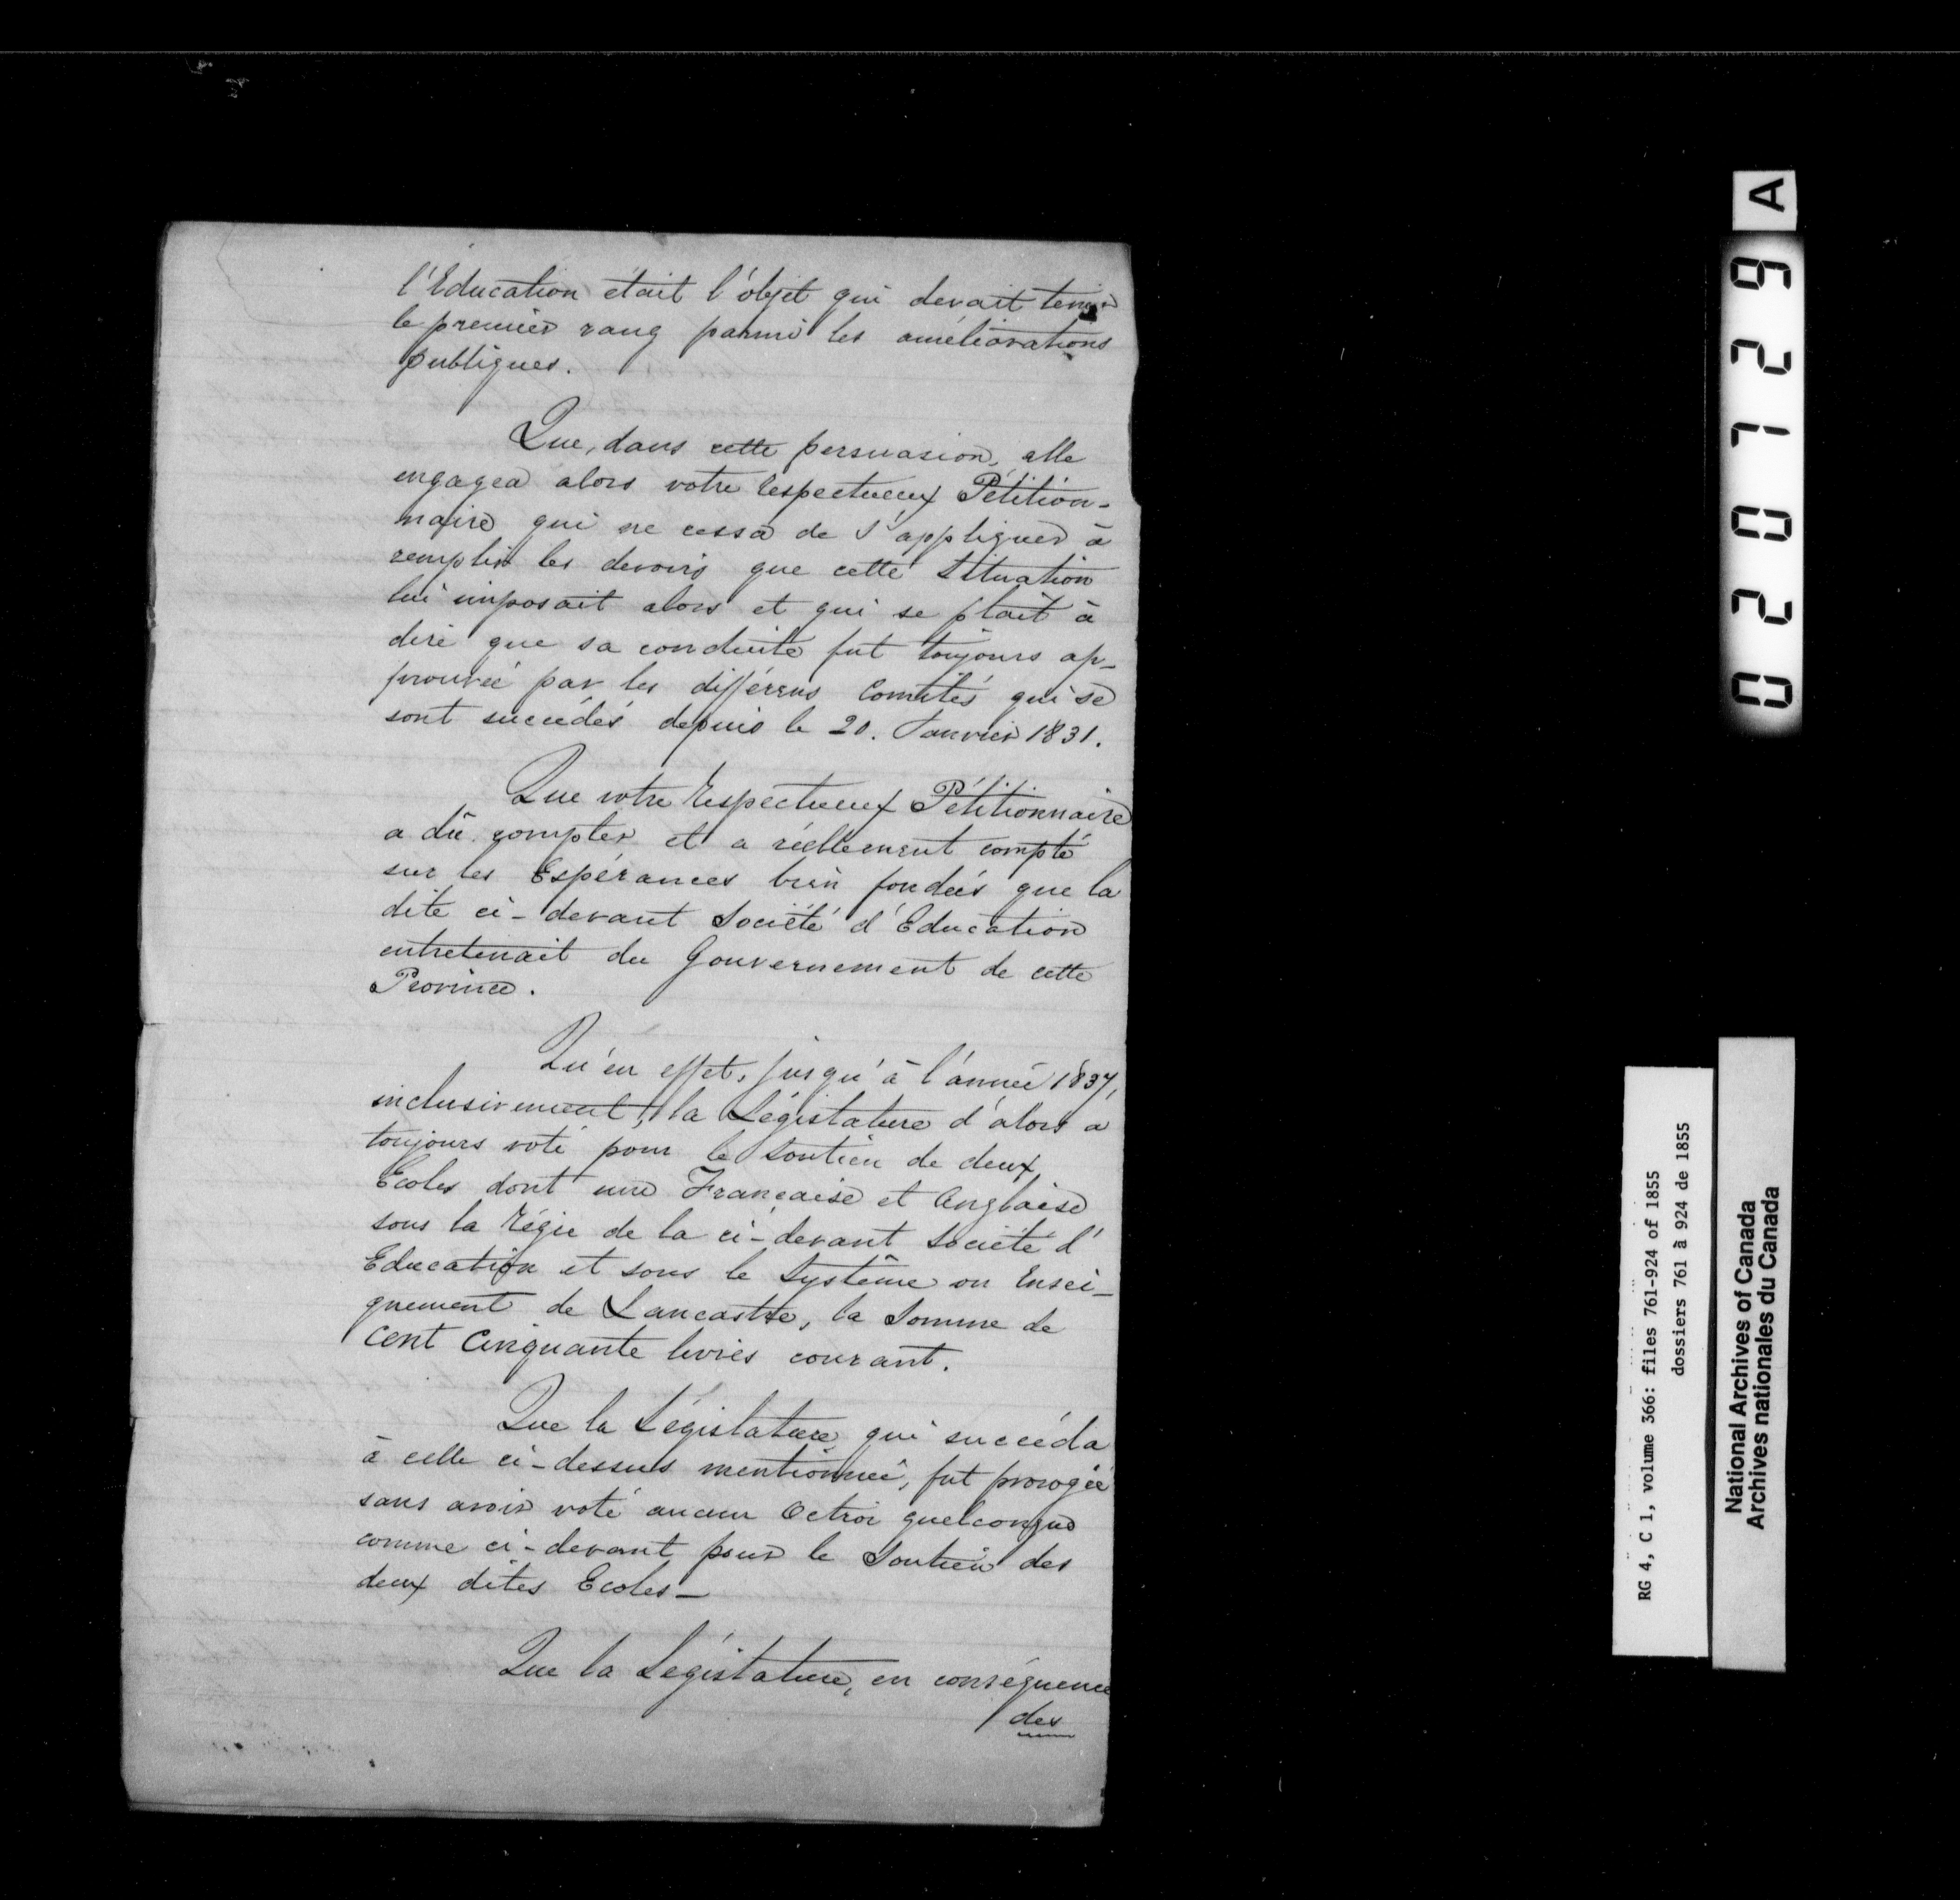 l'Education était l'objet qui devait tenir
le premier rang parmi les améliorations
publiques.
Que, dans cette persuasion, elle
engagea alors votre respectueux Pétition-
naire qui ne cessa de s'appliquer à
remplir les devoirs que cette situation
lui imposait alors et qui se plait à
dire que sa conduite fut toujours ap-
prouvée par les différens Comités qui se
sont succédés depuis le 20. Janvier 1831.
Que votre respectueux Pétitionnaire
a dû compter et a réellement compté
sur les Espérances bien fondées que la
dite ci-devant Société d'Education
entretenait du Gouvernement de cette
Province.
Qu'en effet, jusqu'à l'année 1837,
inclusivement, la Législature d'alors a
toujours voté pour le soutien de deux
Ecoles dont une Française et Anglaise
sous la régie de la ci-devant Société d'
Education et sous le Système ou Ensei-
gnement de Lancastre, la Somme de
cent Cinquante livres courant.
Que la Législature qui succéda
à celle ci-dessus mentionnée, fut prorogée
sans avoir voté aucun Octroi quelconque
comme ci-devant pour le Soutien des
deux dites Ecoles-
Que la Législature, en conséquence
des
A
0207029
RG 4, C 1, volume 366: files 761-924 of 1855
dossiers 761 à 924 de 1855
National Archives of Canada
Archives nationales du Canada